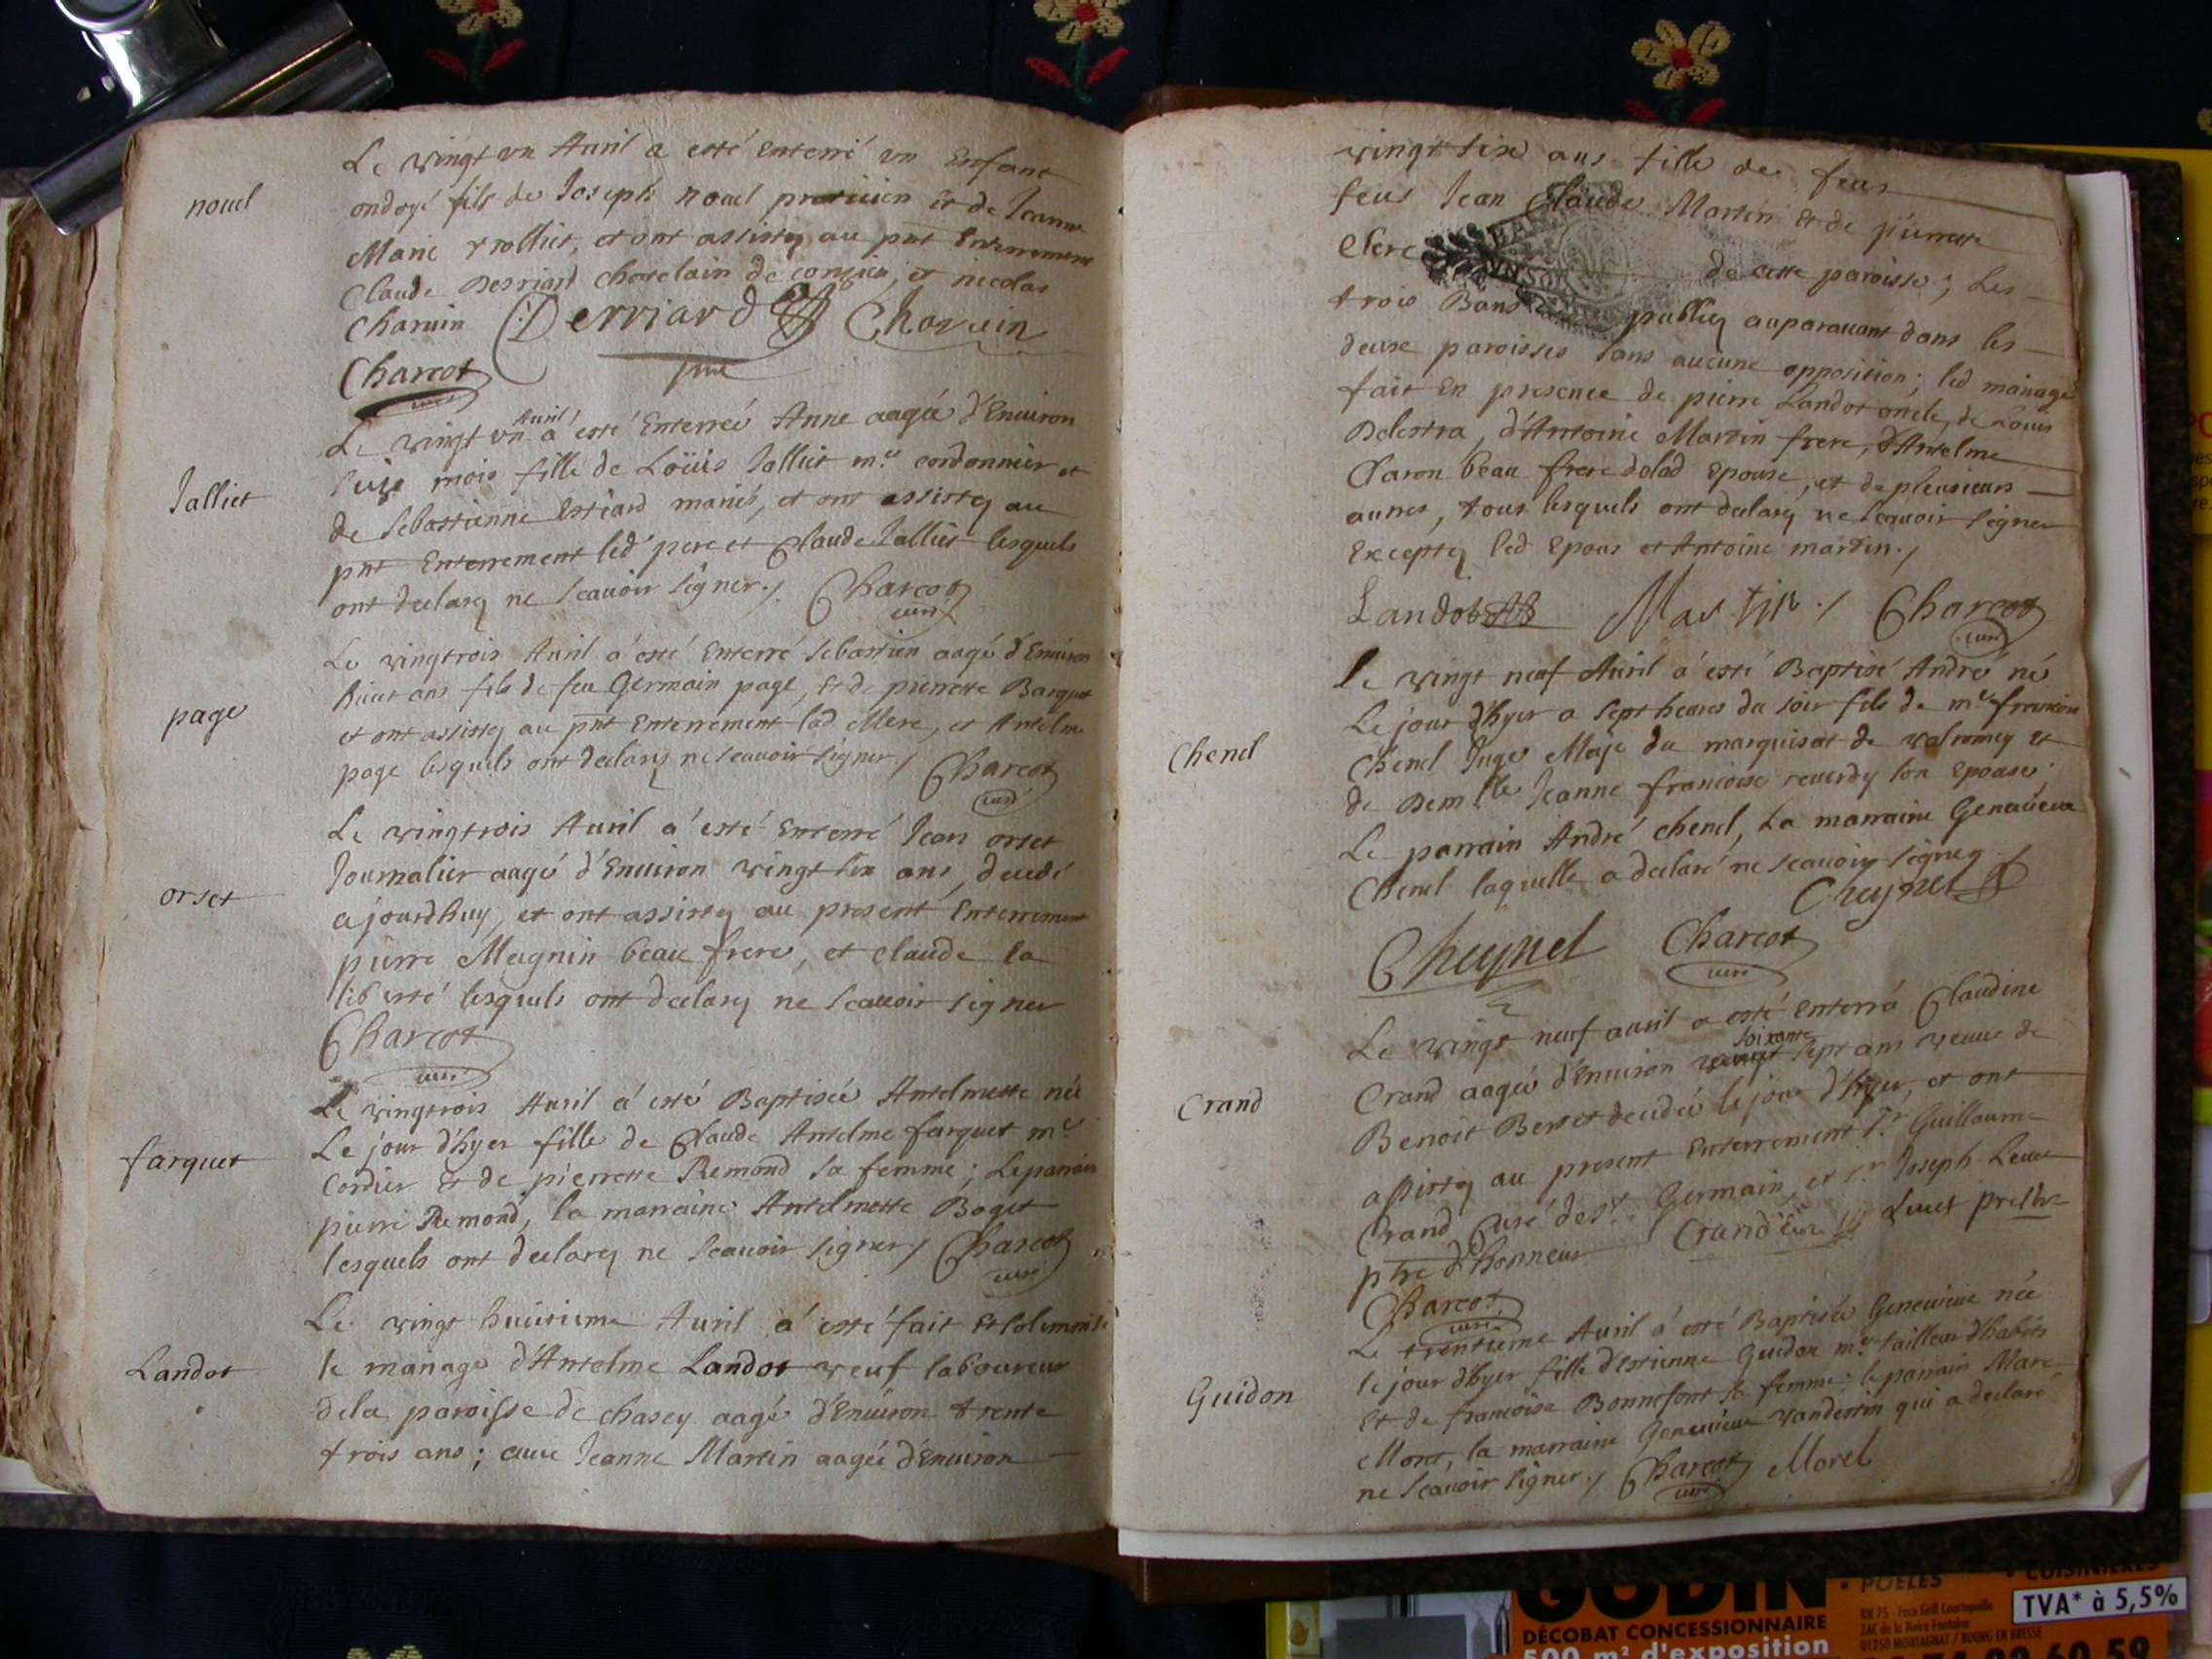 Le vingt un Auril a esté Enterré un Enfant
nouel
ondoyé fils de Joseph nouel praticien et de Jeanne
Marie trolliet, et ont assistez au pnt Enterrement
Claude Derriard chatelain de et nicolas
Charuin Derriard Charuin
Charcot
curé
Le vingt un Auril a esté Enterreé Anne aageé d'Enuiron
Jalliet
seize mois fille de Loüis Jalliet me. cordonnier et
de Sebastienne Estiard mariés, et ont assistez au
pnt Enterrement led pere et Claude Jalliet lesquels
ont declarez ne scauoir signer./. Charcot
curé
Le vingtrois Auril a esté Enterré Sebastien aagé d'Enuiron
page
huict ans fils de feu Germain page, Et de pierrette Barquet
et ont assistez au pnt Enterrement lad Mere, et Antelme
page lesquels ont declarez ne scauoir signer / Charcot
curé
Le vingtrois Auril a esté Enterré Jean orset
orset
Journalier aagé d'Enuiron vingt six ans, decedé
ajourdhuy, et ont assistez au present Enterrement
pierre Meignin beau frere, et claude la
liberté lesquels ont declarez ne scauoir signer
Charcot
curé
Le vingtrois Auril a esté Baptiseé Antelmette neé
farquet
Le jour d'hyer fille de Claude Antelme farquet me
Cordier Et de pierrette Remond sa femme; Le parrain
pierre Remond, la marraine Antelmette Boget
lesquels ont declarez ne scauoir signer / Charcot
curé
Le vingt huictieme Auril a esté fait Et solemnisé
Landot
le mariage d'Antelme Landot veuf laboureur
dela paroisse de chasey aagé d'Enuiron trente
trois ans; auec Jeanne Martin aageé d'Enuiron
vingt six ans fille de feus
feus Jean Claude Martin Et de pierrette
Clerc de cette paroisse; Les
trois Bans publiez auparauant dans les
deux paroisses sans aucune opposition; led mariage
fait En presence de pierre Landot oncle, de Louis
Delestra, d'Antoine Martin frere, d'Antelme
Claron beau frere delad Epouse, et de plusieurs
autres, tous lesquels ont declarez ne scauoir signer
Exceptez led Epoux et Antoine martin./
Landot Martin / Charcot
curé
Le vingt neuf Auril a esté Baptisé André né
Le jour d'hyer a sept heures du soir fils de me francois
Chenel
Chenel Juge Maje du marquisat de valromey et
de Demlle Jeanne francoise reuerdy son Epouse
Le parrain André chenel, La marraine Geneuieue
Chenel laquelle a declaré ne scauoir signer
Cheynel
Cheynel Charcot
curé
Le vingt neuf auril a esté Enterrá Claudine
Crand
Crand aageé d'Enuiron soixante sept ans veuue de
Benoit Berret decedeé le jour d'hyer, et ont
assistez au present Enterrement Sr Guillaume
Crand Curé de St Germain et Sr Joseph Leuet
ptre d'honneur Crand curé Leuet prestre
Charcot
curé
Le trentieme Auril a esté Baptiseé Geneuieue neé
Guidon
le jour d'hyer fille d'Estienne Guidon me tailleur d'habits
Et de francoise Bonnefont sa femme; le parrain Marc
Morel, la marraine Geneuieue vandestin qui a declaré
ne scauoir signer./ Charcot Morel
curé
GODIN
• POELES • CUISINIERES
DÉCOBAT CONCESSIONNAIRE
TVA* à 5,5%
500 m² d'exposition